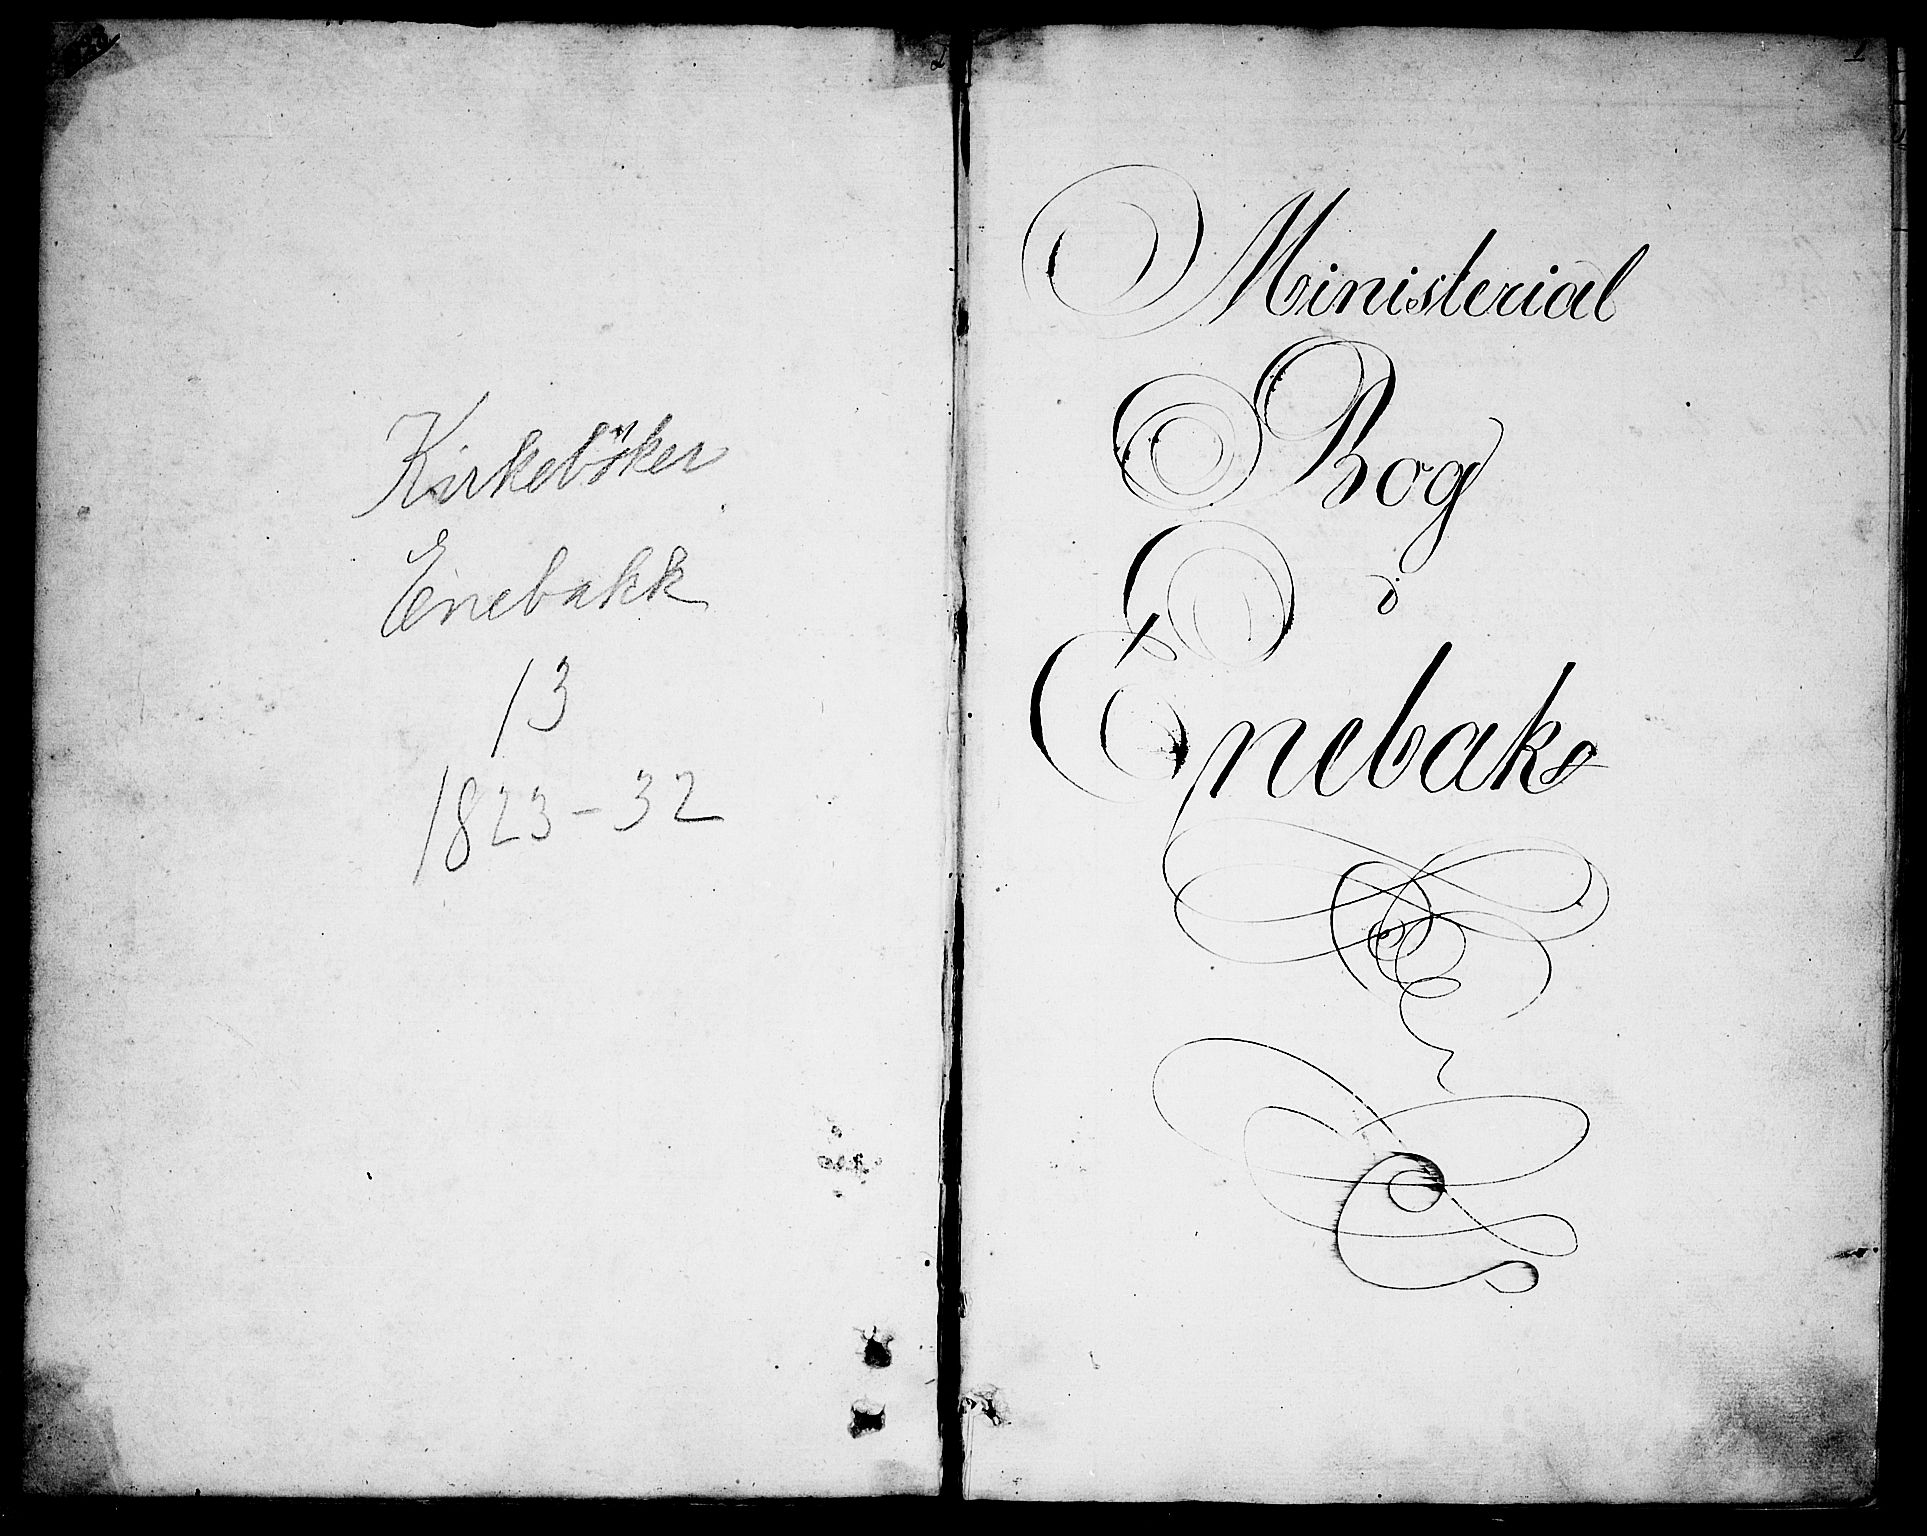 Kirkebøker
Enebakk
13
1823-32
Ministerial
Bog
i
Enebak
1